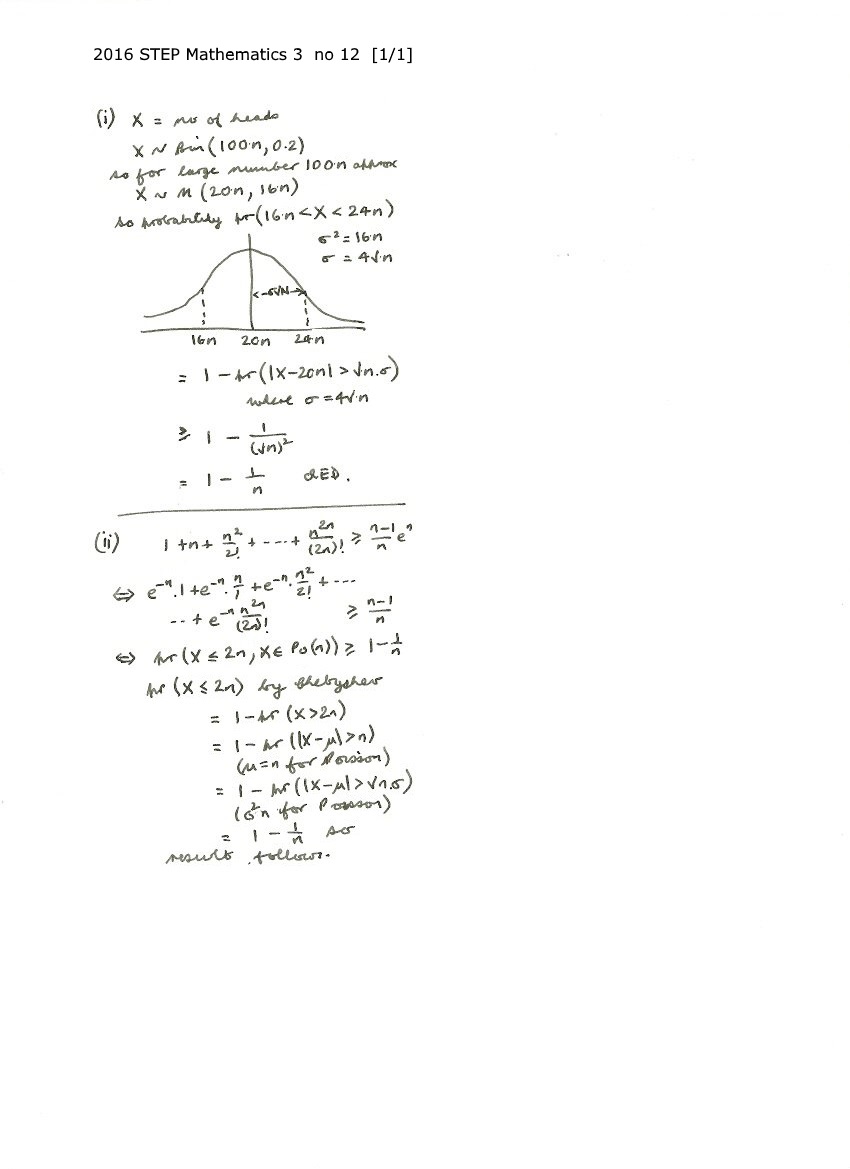 2016 STEP Mathematics 3 no 12 [1/1]
(i) X = no of heads
X ~ Bin(100n, 0.2)
so for large number 100n approx
X ~ N(20n, 16n)
so probability pr(16n < X < 24n)
σ² = 16n
σ = 4√n
<-σ√N->
16n 20n 24n
= 1 - pr(|X-20n| > √n.σ)
where σ = 4√n
≥ 1 - 1/(√n)²
= 1 - 1/n QED.
(ii) 1 + n + n²/2! + ---- + n²ⁿ/(2n)! ≥ (n-1)/n eⁿ
⇔ e⁻ⁿ.1 + e⁻ⁿ.n/1 + e⁻ⁿ.n²/2! + ---
-- + e⁻ⁿ n²ⁿ/(2n)! ≥ (n-1)/n
⇔ pr(X ≤ 2n, X ∈ Po(n)) ≥ 1 - 1/n
pr(X ≤ 2n) by Chebyshev
= 1 - pr(X > 2n)
= 1 - pr(|X-μ| > n)
(μ = n for Poisson)
= 1 - pr(|X-μ| > √n.σ)
(σ² n for Poisson)
= 1 - 1/n so
result follows.